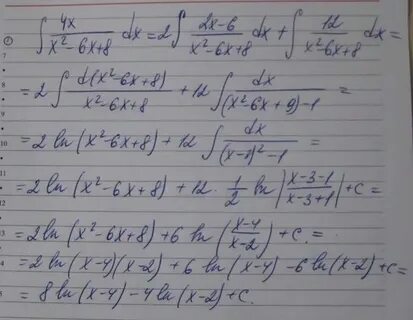 ∫ 4x/(x²-6x+8) dx = 2∫ (2x-6)/(x²-6x+8) dx + ∫ 12/(x²-6x+8) dx =
= 2∫ d(x²-6x+8)/(x²-6x+8) + 12∫ dx/((x²-6x+9)-1) =
= 2 ln(x²-6x+8) + 12∫ dx/((x-3)²-1) =
= 2 ln(x²-6x+8) + 12·1/2 ln|(x-3-1)/(x-3+1)| + C =
= 2 ln(x²-6x+8) + 6 ln((x-4)/(x-2)) + C. =
= 2 ln(x-4)(x-2) + 6 ln(x-4) - 6 ln(x-2) + C =
= 8 ln(x-4) - 4 ln(x-2) + C.